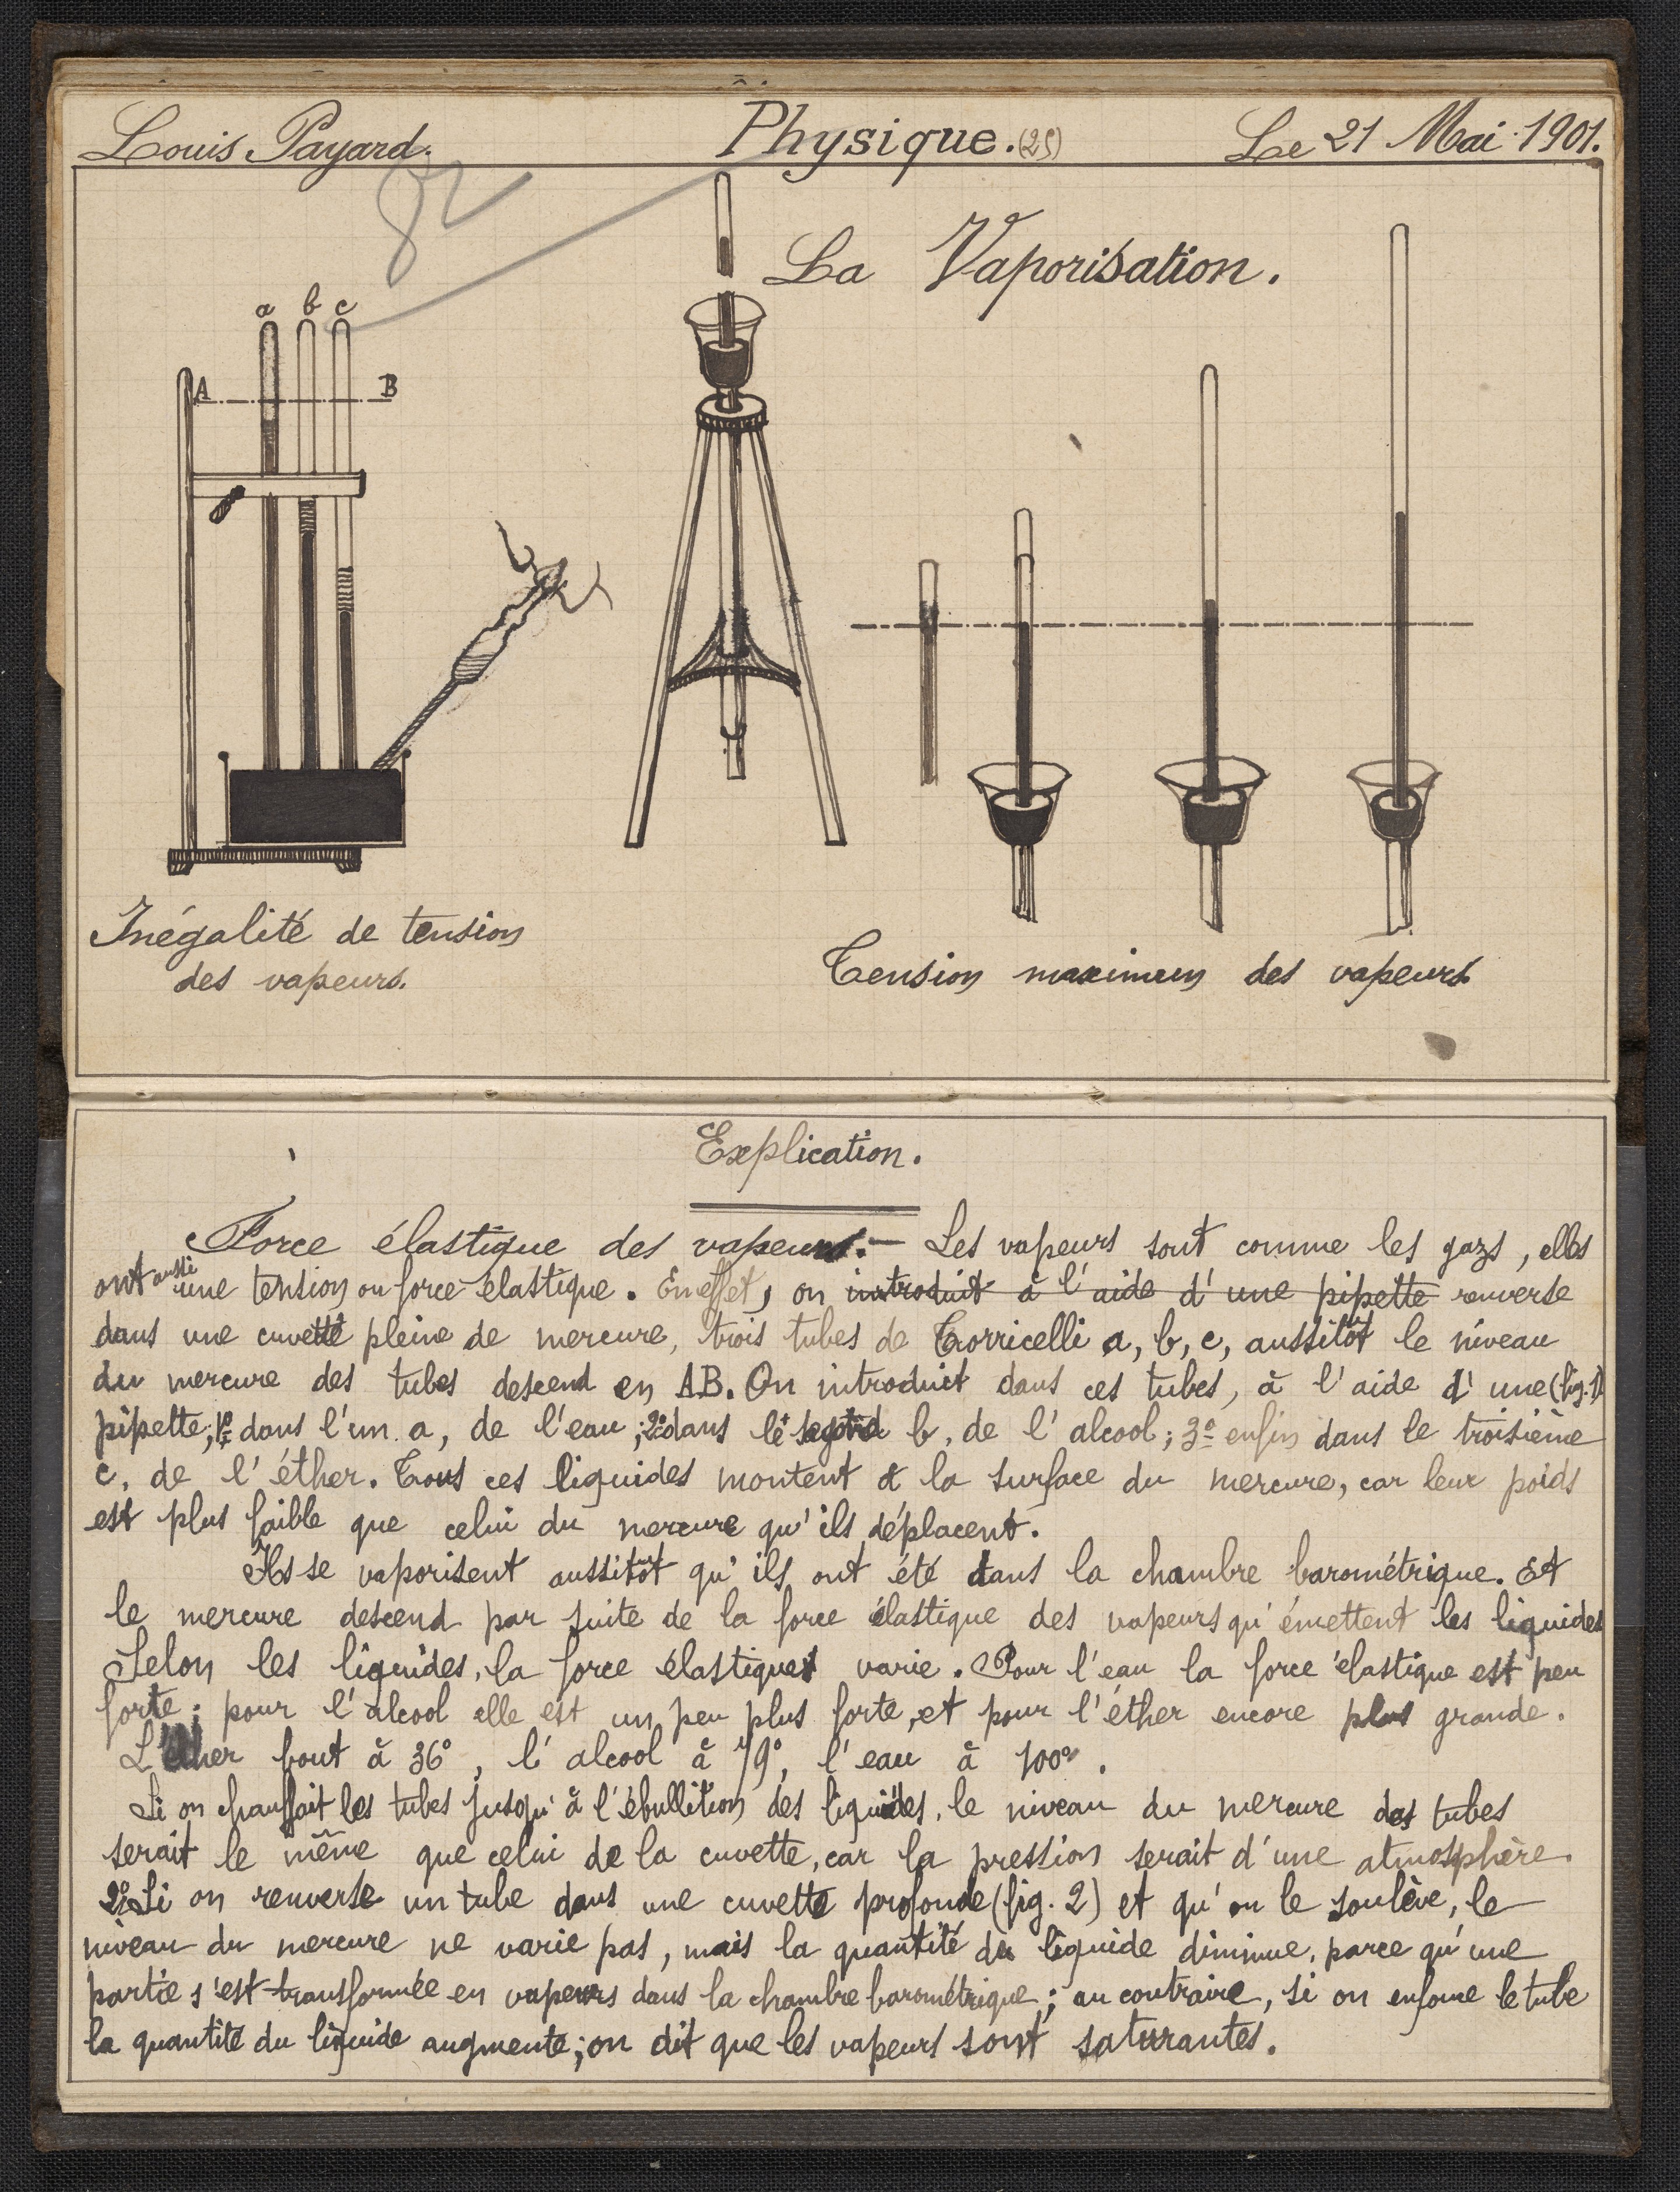 Louis Payard. Physique. (25) Le 21 Mai 1901.
82
La Vaporisation.
a b c
A B
Inégalité de tension
des vapeurs.
Tension maximum des vapeurs.
Explication.
Force élastique des vapeurs.— Les vapeurs sont comme les gazs, elles
ont aussi une tension ou force élastique. En effet, on introduit à l'aide d'une pipette renverse
dans une cuvette pleine de mercure, trois tubes de Torricelli a, b, c, aussitôt le niveau
du mercure des tubes descend en AB. On introduit dans ces tubes, à l'aide d'une (fig. 1)
pipette; 1º dans l'un a, de l'eau; 2º dans le second b, de l'alcool; 3º enfin dans le troisième
c, de l'éther. Tous ces liquides montent à la surface du mercure, car leur poids
est plus faible que celui du mercure qu'ils déplacent.
Ils se vaporisent aussitôt qu'ils ont été dans la chambre barométrique. Et
le mercure descend par suite de la force élastique des vapeurs qu'émettent les liquides
Selon les liquides, la force élastique varie. Pour l'eau la force élastique est peu
forte; pour l'alcool elle est un peu plus forte, et pour l'éther encore plus grande.
L'éther bout à 36°, l'alcool à 79°, l'eau à 100°.
Si on chauffait les tubes jusqu'à l'ébullition des liquides, le niveau du mercure des tubes
serait le même que celui de la cuvette, car la pression serait d'une atmosphère.
2º Si on renverse un tube dans une cuvette profonde (fig. 2) et qu'on le soulève, le
niveau du mercure ne varie pas, mais la quantité du liquide diminue, parce qu'une
partie s'est transformée en vapeurs dans la chambre barométrique; au contraire, si on enfonce le tube
la quantité du liquide augmente; on dit que les vapeurs sont saturantes.